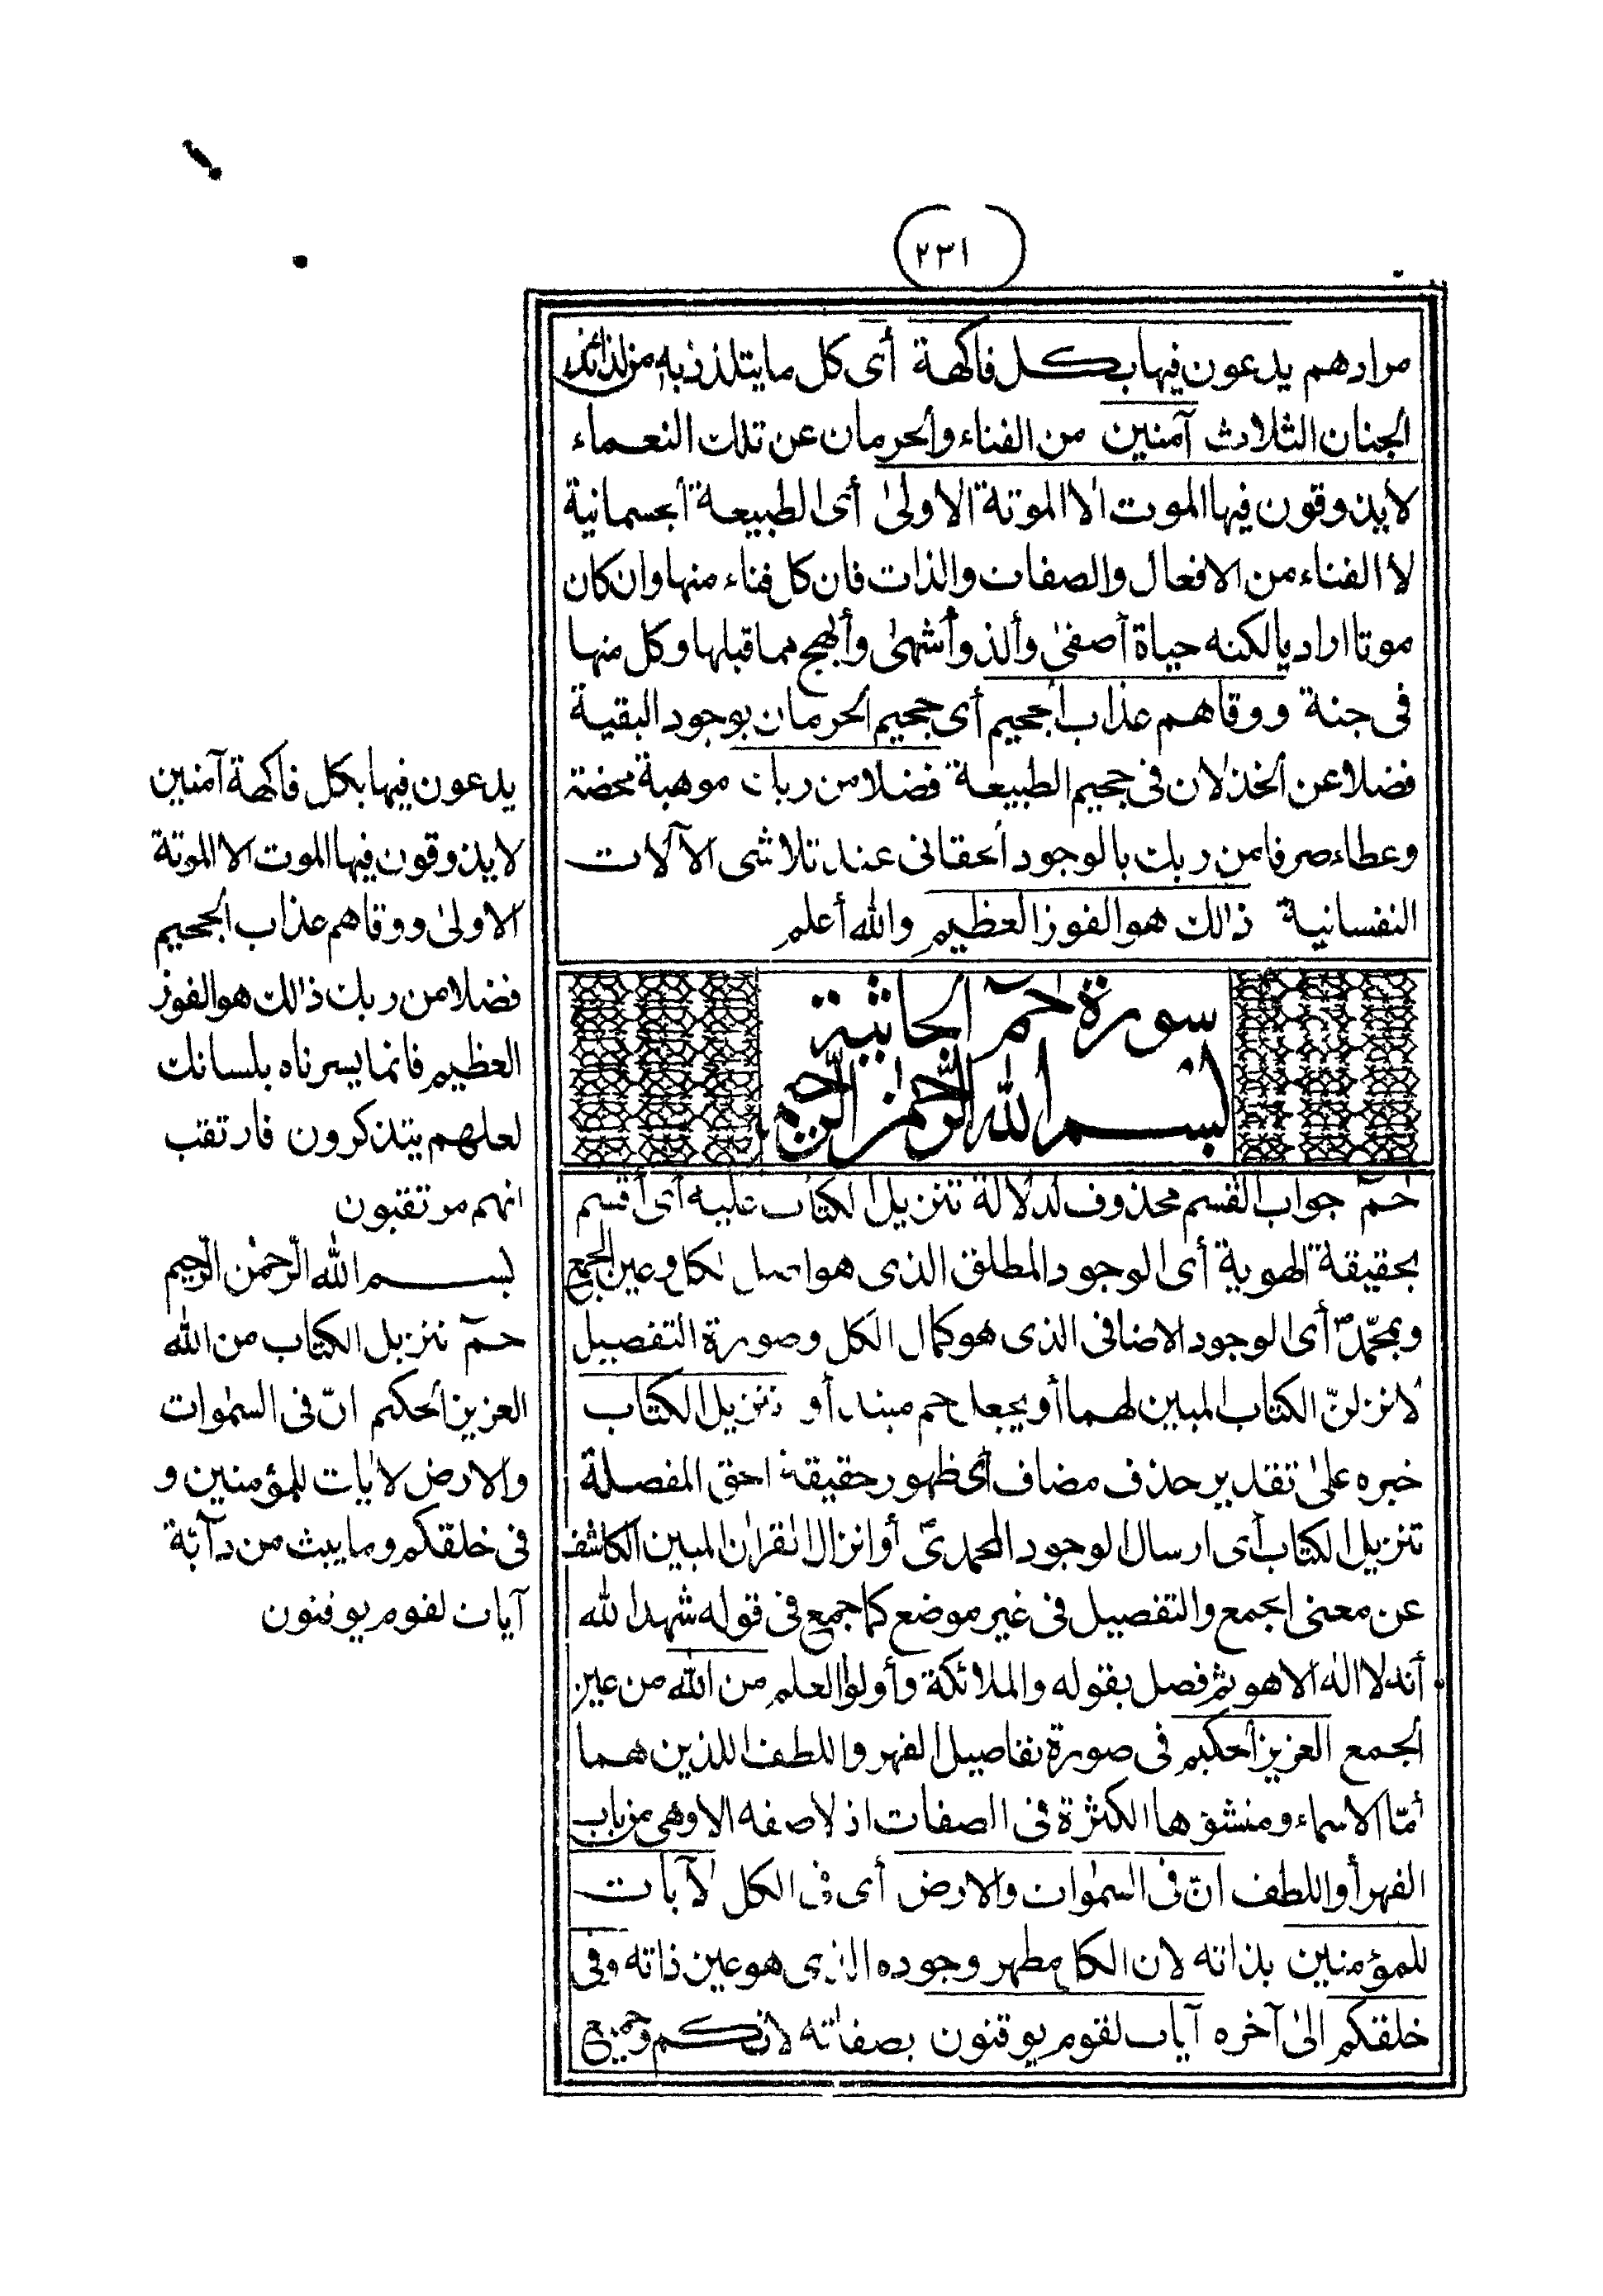 (٢٣١)
مرادهم يدعون فيها بكل فاكهة أى كل ما يتلذذ به من لذائذ
الجنان الثلاث آمنين من الفناء والحرمان عن تلك النعماء
لا يذوقون فيها الموت الا الموتة الاولىٰ أى الطبيعة الجسمانية
لا الفناء من الافعال والصفات والذات فان كل فناء منها وان كان
موتا اراديا لكنه حياة أصفىٰ وألذ وأشهىٰ وأبهج مما قبلها وكل منها
فى جنة ووقاهم عذاب الجحيم أى جحيم الحرمان بوجود البقية
فضلا عن الخذلان فى جحيم الطبيعة فضلا من ربك موهبة محضة
وعطاء صرفا من ربك بالوجود الحقانى عند تلاشى الآلات
النفسانية ذالك هو الفوز العظيم والله أعلم
سورة حٰمٓ الجاثية
بسم الله الرّحمٰن الرّحيم
حٰمٓ جواب القسم محذوف لدلالة تنزيل الكتاب عليه أى أقسم
بحقيقة الهوية أى الوجود المطلق الذى هو اصل الكل وعين الجمع
وبمحمّد أى الوجود الاضافى الذى هو كمال الكل وصورة التفصيل
لانزلنّ الكتاب المبين لهما أو يجعل حم مبتدأ و تنزيل الكتاب
خبره علىٰ تقدير حذف مضاف أى ظهور حقيقة الحق المفصلة
تنزيل الكتاب أى ارسال الوجود المحمدىّ أو انزال القرآن المبين الكاشف
عن معنى الجمع والتفصيل فى غير موضع كما جمع فى قوله شهد الله
أنه لا الٰه الا هو ثم فصل بقوله والملائكة وأولوا العلم من الله من عين
الجمع العزيز الحكيم فى صورة تفاصيل القهر واللطف اللذين هما
أمّا الاسماء ومنشؤها الكثرة فى الصفات اذ لا صفة الا وهى من باب
القهر أو اللطف انّ فى السمٰوات والارض أى فى الكل لآيات
للمؤمنين بذاته لان الكل مظهر وجوده الذى هو عين ذاته وفى
خلقكم الىٰ آخره آيات لقوم يوقنون بصفاته لأنكم وجميع
يدعون فيها بكل فاكهة آمنين
لا يذوقون فيها الموت الا الموتة
الاولىٰ ووقاهم عذاب الجحيم
فضلا من ربك ذالك هو الفوز
العظيم فانما يسرناه بلسانك
لعلهم يتذكرون فارتقب
انهم مرتقبون
بسم الله الرّحمٰن الرّحيم
حٰمٓ تنزيل الكتاب من الله
العزيز الحكيم انّ فى السمٰوات
والارض لآيات للمؤمنين و
فى خلقكم وما يبث من دآبّة
آيات لقوم يوقنون